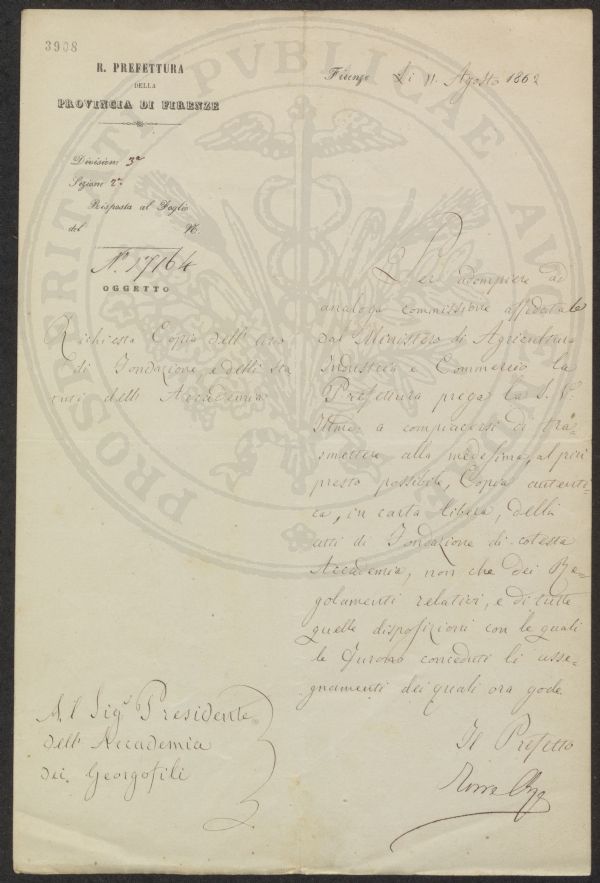 3908
R. PREFETTURA
DELLA
PROVINCIA DI FIRENZE
Firenze Li 11. Agosto 1862
Divisione 3ª
Sezione 2ª
Risposta al Foglio
del N.
Nº 17164
OGGETTO
Richiesta Copia dell' atto
di Fondazione e delli sta
tuti dell' Accademia
Per adempiere ad
analoga commissione affidatale
dal Ministero di Agricoltura
Industria e Commercio la
Prefettura prega la S. V.
Illma a compiacersi di tra-
smettere alla medesima, al più
presto possibile, Copia autenti-
ca, in carta libera, delli
atti di Fondazione di cotesta
Accademia, non che dei Re-
golamenti relativi, e di tutte
quelle disposizioni con le quali
le furono conceduti li asse-
gnamenti dei quali ora gode
Al Sigr Presidente
dell' Accademia
dei Georgofili
Il Prefetto
PROSPERITATI PVBLICAE AVGENDAE